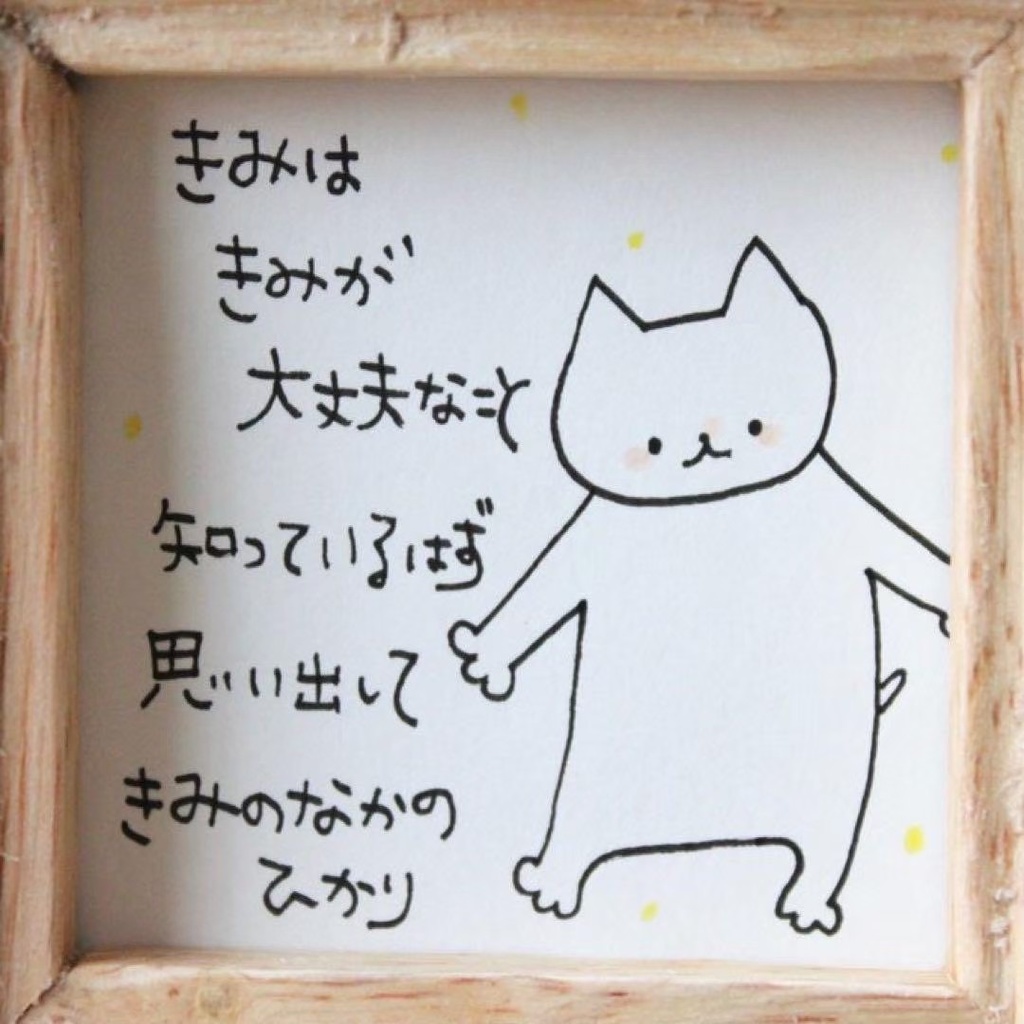 きみは
きみが
大丈夫なこと
知っているはず
思い出して
きみのなかの
ひかり